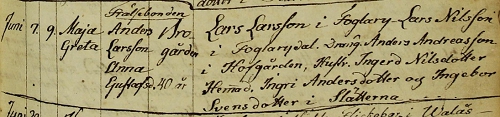 Frälsebonden
Juni 7. 9. Maja Anders i Bro Lars Larsson i Foglary. Lars Nilsson
Greta Larsson gården i Foglarydal. Dräng. Anders Andreasson
Linna i Hofgården, Hustr. Ingerd Nilsdotter
Gustafsd. 40 år Hemad. Ingri Andersdotter og Ingebor
Svensdotter i Slätterna
Juni